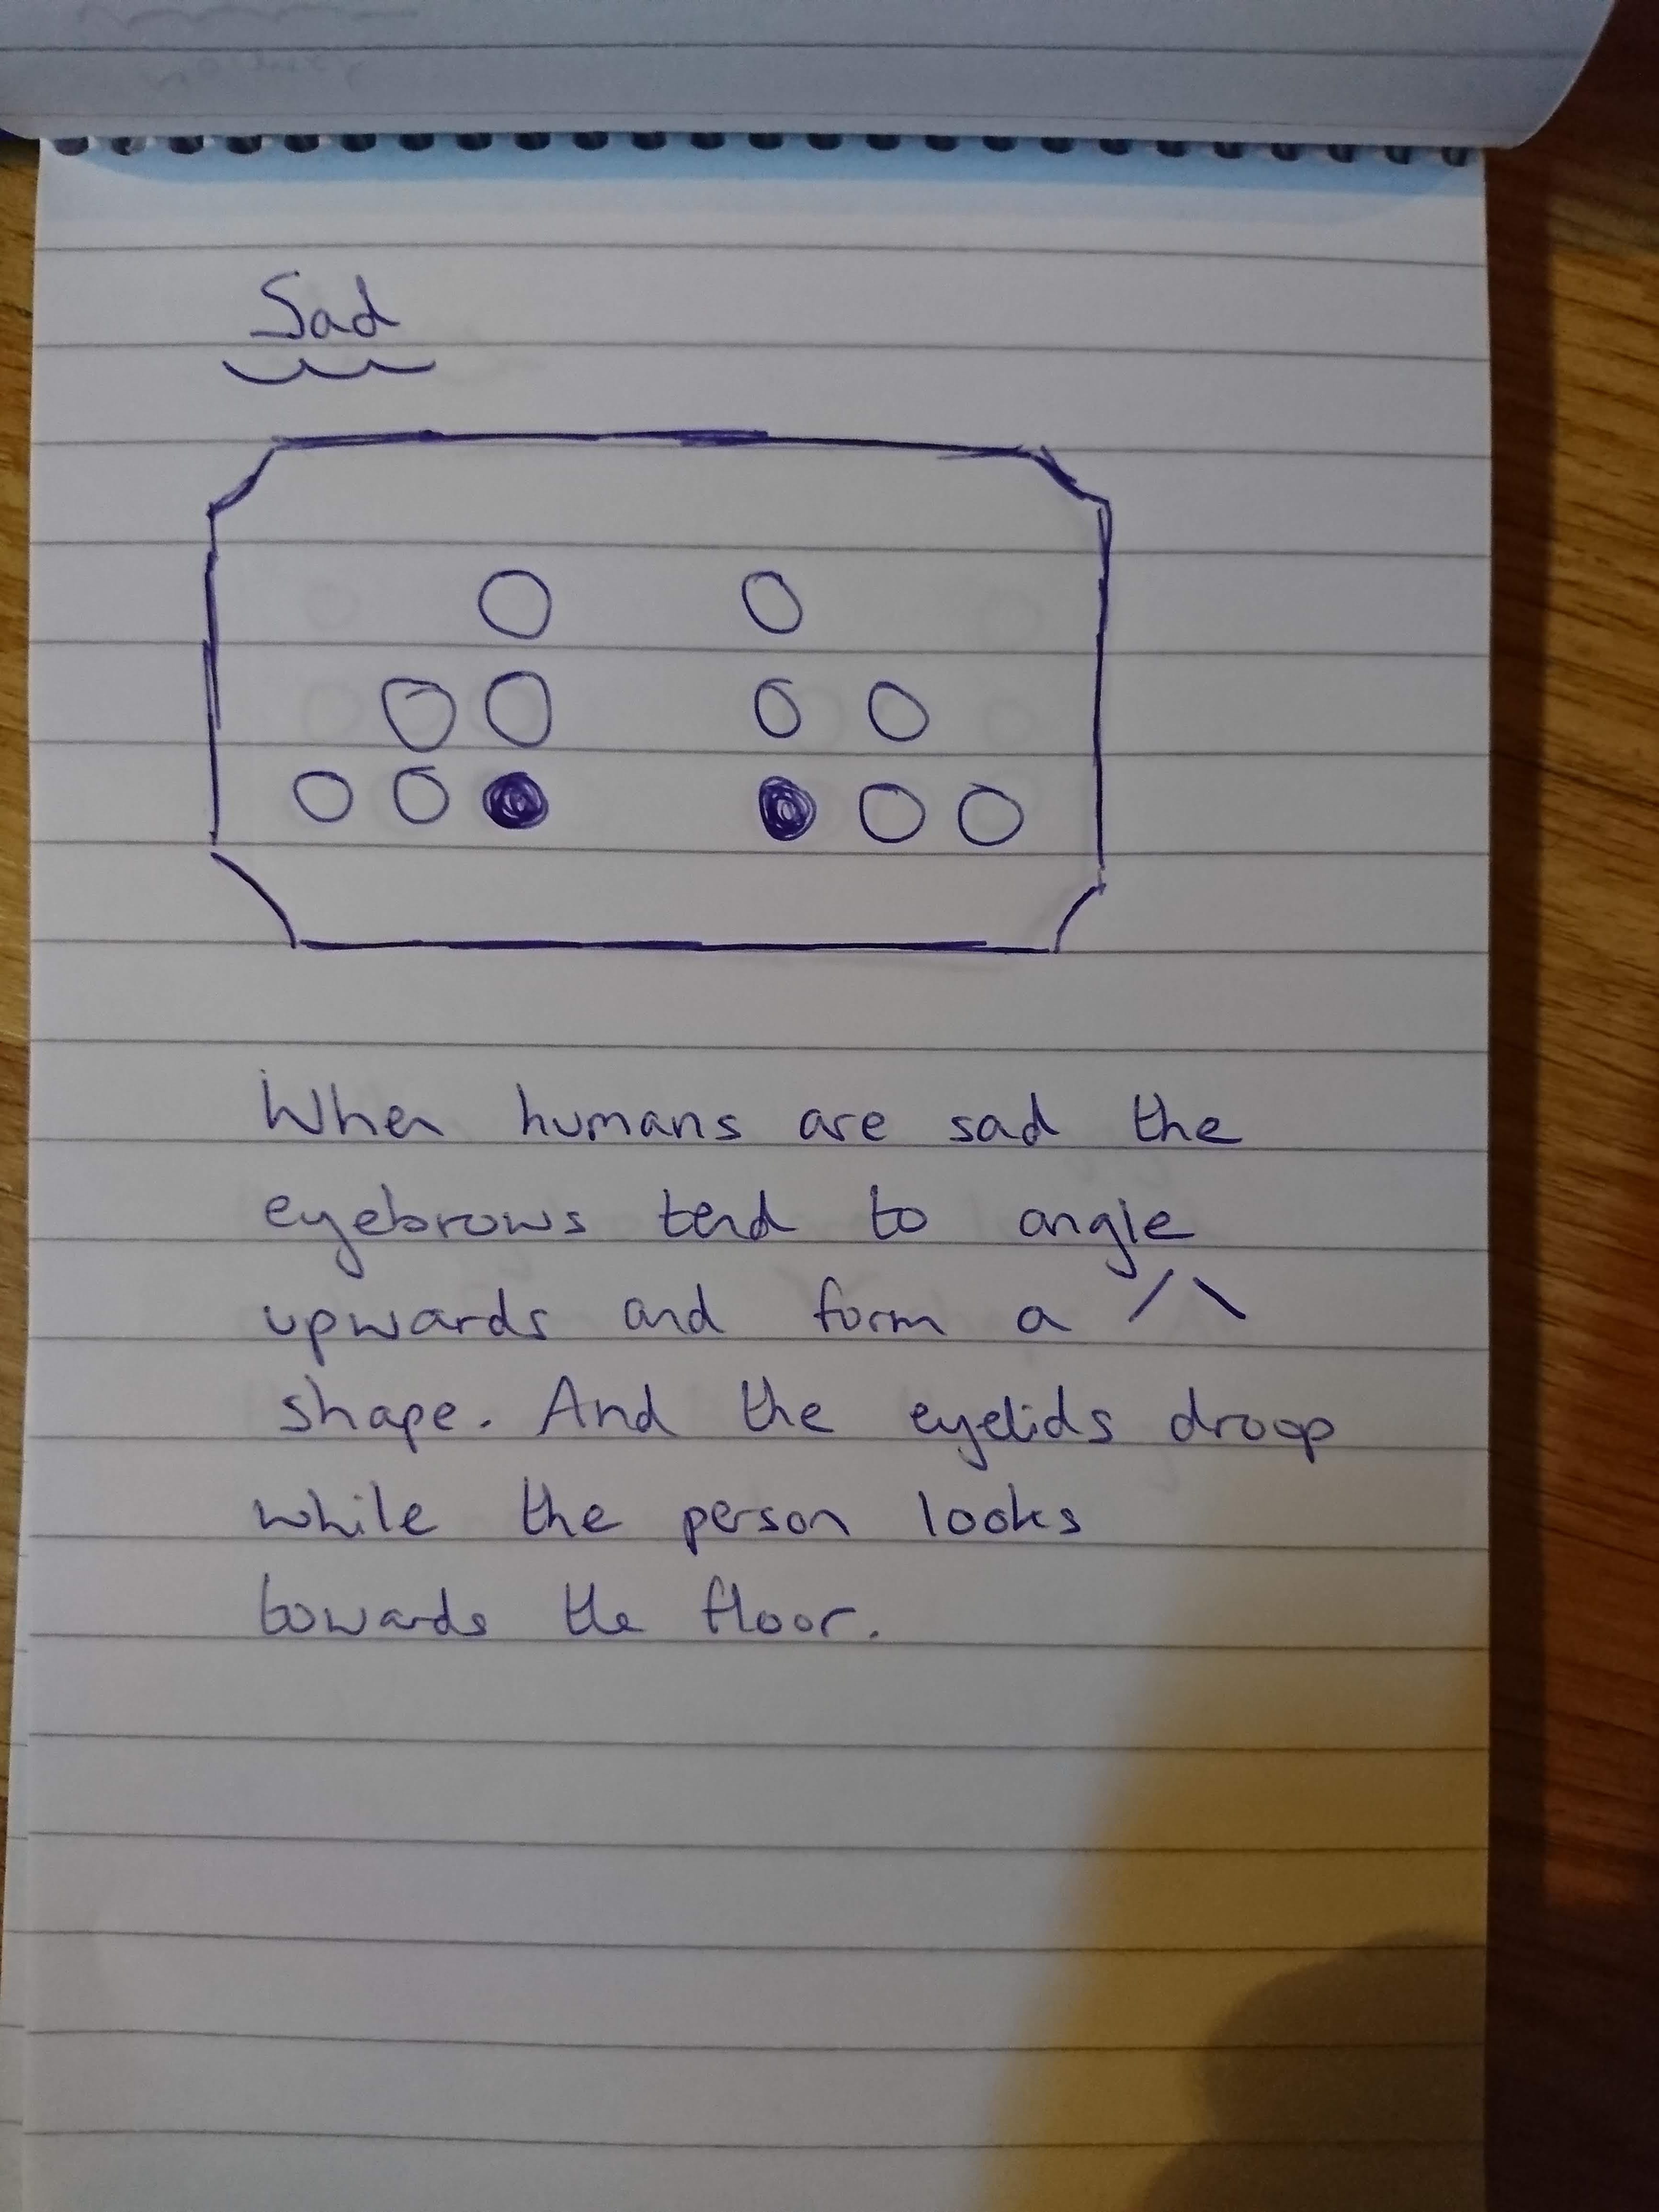 Sad
When humans are sad the
eyebrows tend to angle
upwards and form a / \
shape. And the eyelids droop
while the person looks
towards the floor.